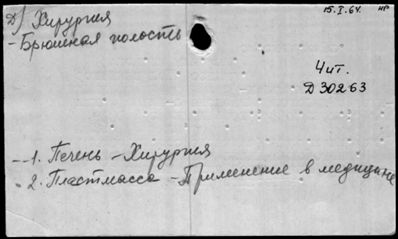 Д/ Хирургия
15.I.64. нр
- Брюшная полость
Чит.
Д 30263
- 1. Печень - Хирургия
- 2. Пластмасса - Применение в медицине